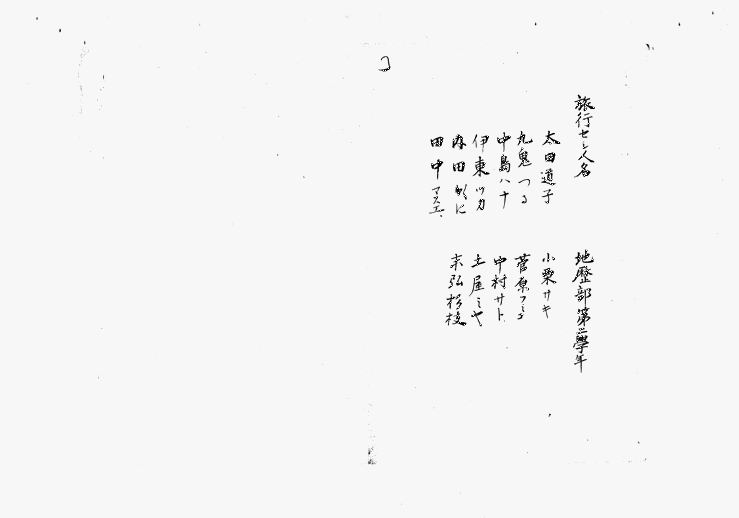 旅行セシ人名
地歷部第三學年
太田道子
小栗サキ
九鬼つる
菅原フミ
中島ハナ
中村サト
伊東ツカ
土屋ミヤ
内田
田中マスエ
末弘杉枝